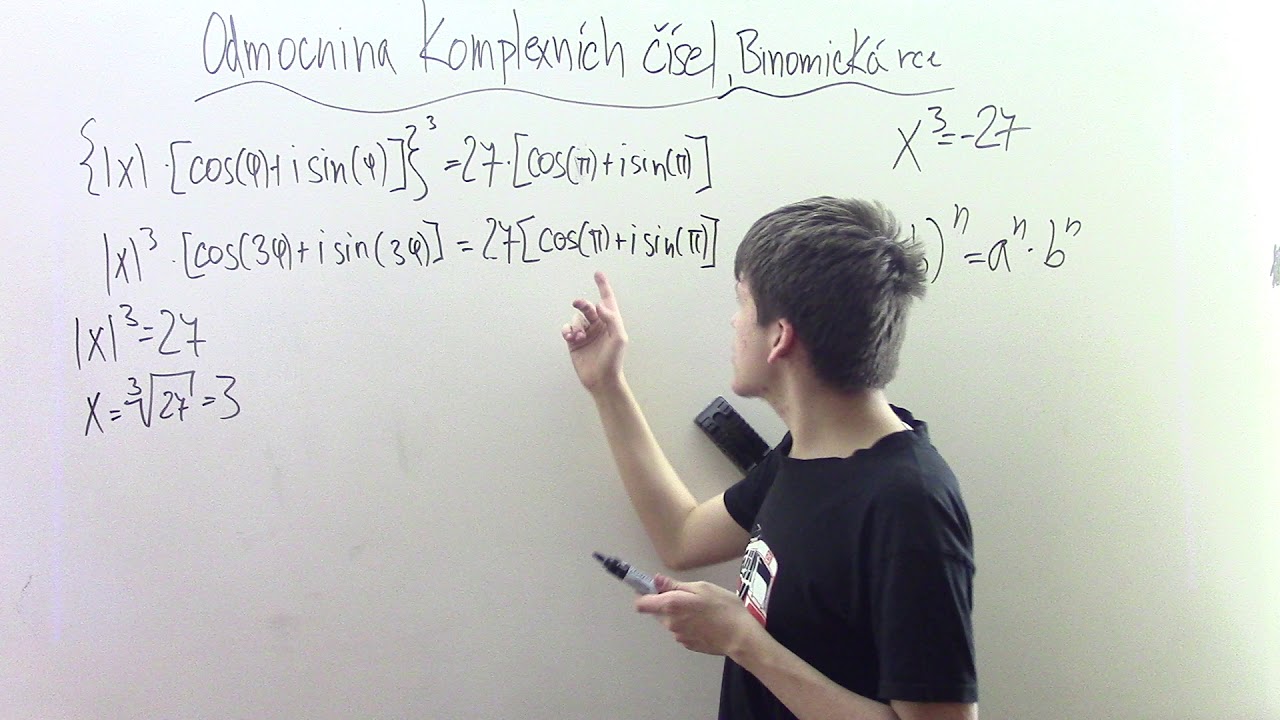 Odmocnina Komplexních čísel, Binomická rce
{|x| · [cos(φ)+i sin(φ)]}³ = 27·[cos(π)+i sin(π)]
x³=-27
|x|³ · [cos(3φ)+i sin(3φ)] = 27[cos(π)+i sin(π)]
)ⁿ = aⁿ · bⁿ
|x|³=27
x = ∛27 = 3